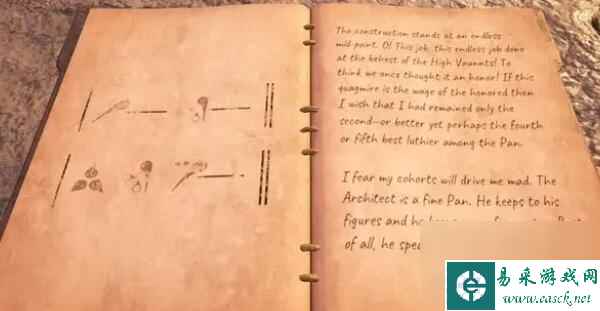 The construction stands at an endless
mid-point. O! This job, this endless job done
at the behest of the High Vaunnts! To
think we once thought it an honor! If this
quagmire is the wage of the honored then
I wish that I had remained only the
second—or better yet perhaps the fourth
or fifth best luthier among the Pan.
I fear my cohorts will drive me mad. The
Architect is a fine Pan. He keeps to his
figures and he
of all, he spe
易采游戏网
www.easck.net